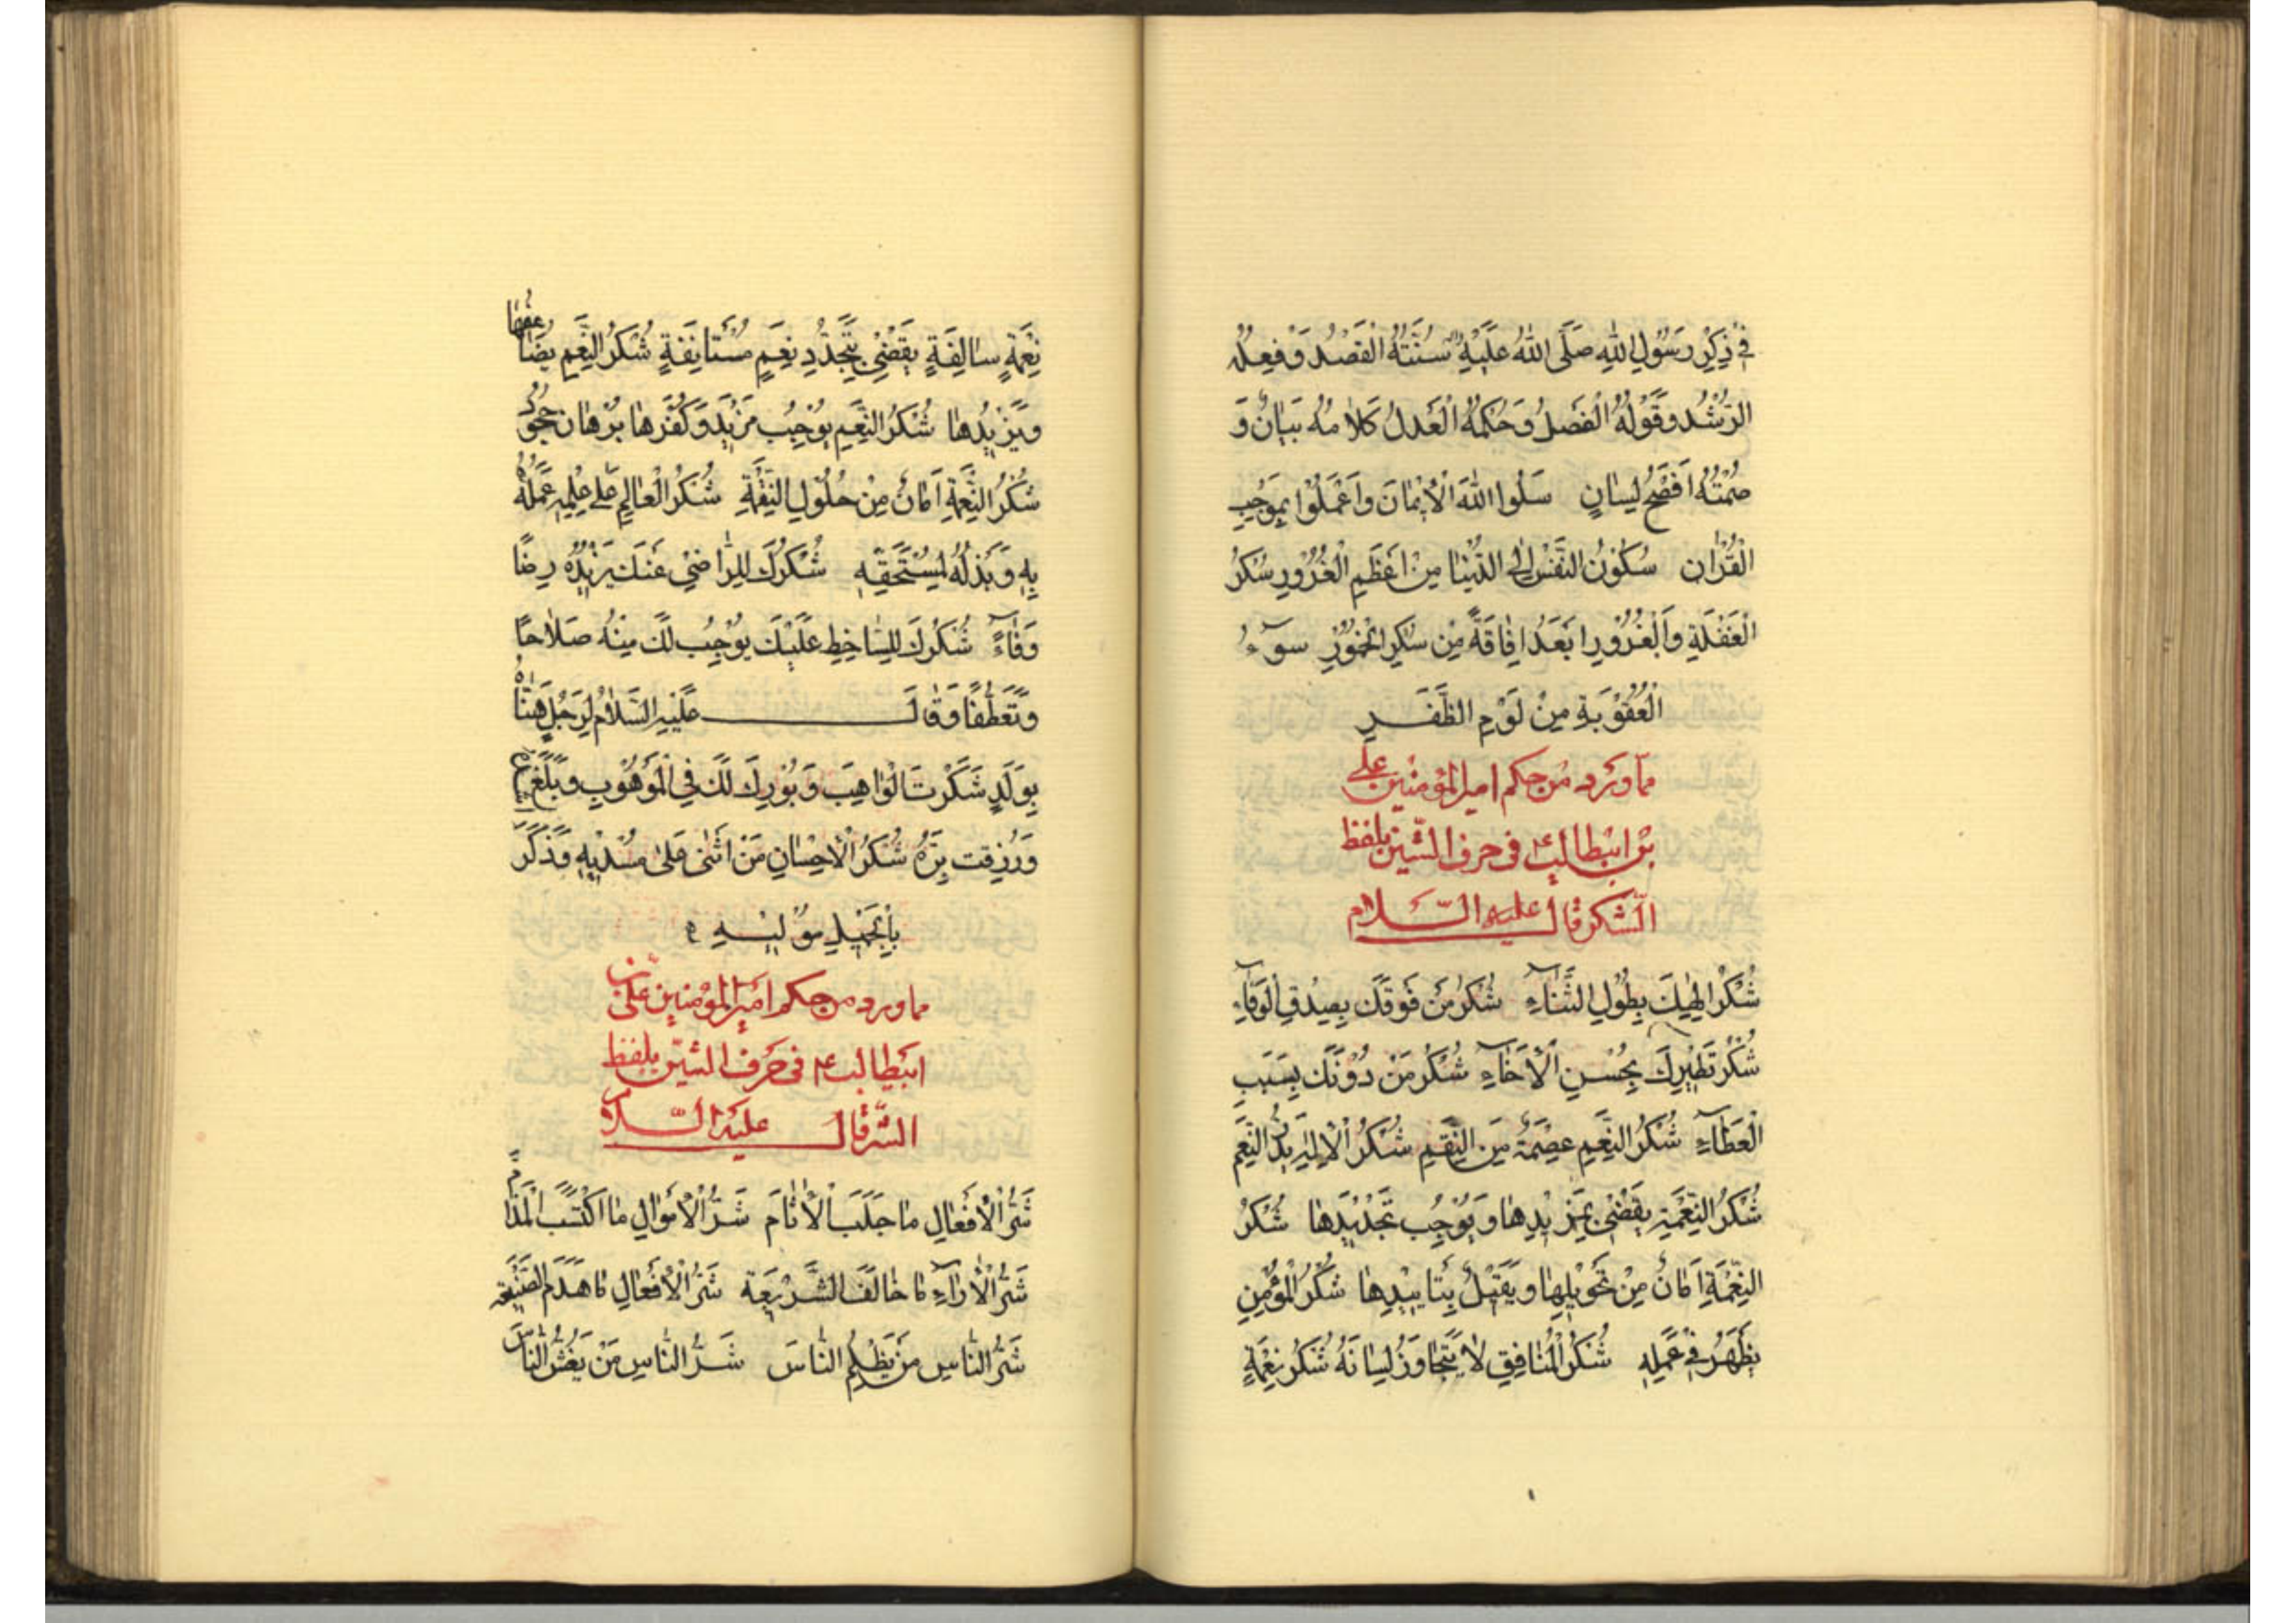 فِي ذِكْرِ رَسُولِ اللهِ صَلَّى اللهُ عَلَيْهِ سُنَّتُهُ الْقَصْدُ وَفِعْلُهُ
الرُّشْدُ وَقَوْلُهُ الْفَصْلُ وَحُكْمُهُ الْعَدْلُ كَلَامُهُ بَيَانٌ وَ
صَمْتُهُ اَفْصَحُ لِسَانٍ سَلُوا اللهَ الْاِيْمَانَ وَاعْمَلُوْا بِمُوْجِبِ
الْقُرْاٰنِ سُكُوْنُ النَّفْسِ اِلَى الدُّنْيَا مِنْ اَعْظَمِ الْغُرُوْرِ سُكْرُ
الْغَفْلَةِ وَالْغُرُوْرِ اَبْعَدُ اِفَاقَةً مِنْ سُكْرِ الْخُمُوْرِ سُوْءُ
الْعُقُوْبَةِ مِنْ لَوْمِ الظَّفَرِ
مما ورد من حكم امير المؤمنين على
بن ابيطالب ع فى حرف الشين بلفظ
الشكر قال عليه السلام
شُكْرُ اِلٰهِكَ بِطُوْلِ الثَّنَاءِ شُكْرُ مَنْ فَوْقَكَ بِصِدْقِ الْوَفَاءِ
شُكْرُ نَظِيْرِكَ بِحُسْنِ الْاِخَاءِ شُكْرُ مَنْ دُوْنَكَ بِسَبَبِ
الْعَطَاءِ شُكْرُ النِّعَمِ عِصْمَةٌ مِنَ النِّقَمِ شُكْرُ الْاِلٰهِ يُدِرُّ النِّعَمَ
شُكْرُ النِّعْمَةِ يَقْضِىْ بِمَزِيْدِهَا وَيُوْجِبُ تَجْدِيْدَهَا شُكْرُ
النِّعْمَةِ اَمَانٌ مِنْ تَحْوِيْلِهَا وَ بِتَاْيِيْدِهَا شُكْرُ الْمُؤْمِنِ
يَظْهَرُ فِيْ عَمَلِهِ شُكْرُ الْمُنَافِقِ لَا يَتَجَاوَزُ لِسَانَهُ شُكْرُ نِعْمَةٍ
نِعْمَةٍ سَالِفَةٍ يَقْضِىْ بِتَجَدُّدِ نِعَمٍ مُسْتَانِفَةٍ شُكْرُ النِّعَمِ يُضَاعِفُهَا
وَيَزِيْدُهَا شُكْرُ النِّعَمِ يُوْجِبُ مَزِيْدَ وَكُفْرُهَا بُرْهَانُ جُحُوْدٍ
شُكْرُ النِّعْمَةِ اَمَانٌ مِنْ حُلُوْلِ النِّقْمَةِ شُكْرُ الْعَالِمِ عَلٰى عِلْمِهِ عَمَلُهُ
بِهِ وَبَذْلُهُ لِمُسْتَحَقِّهِ شُكْرُكَ لِلرَّاضِىْ عَنْكَ يَزِيْدُهُ رِضًا
وَوَفَاءً شُكْرُكَ لِلسَّاخِطِ عَلَيْكَ يُوْجِبُ لَكَ مِنْهُ صَلَاحًا
وَتَعَطُّفًا وَقَالَ عَلَيْهِ السَّلَامُ لِرَجُلٍ هَنَّاهُ
بِوَلَدٍ شَكَرْتَ الْوَاهِبَ وَبُوْرِكَ لَكَ فِي الْمَوْهُوْبِ وَبَلَغَ
وَرُزِقْتَ بِرَّهُ شُكْرُ الْاِحْسَانِ مَنْ اَثْنٰى عَلٰى مُسْدِيْهِ وَذَكَرَ
بِالْجَمِيْلِ مُوْلِيْهِ
مما ورد من حكم امير المؤمنين على بن
ابيطالب ع فى حرف الشين بلفظ
الشر قال عليه السلام
شَرُّ الْاَفْعَالِ مَا جَلَبَ الْاٰثَامَ شَرُّ الْاَمْوَالِ مَا اكْتَسَبَ الْمَذَامَّ
شَرُّ الْاٰرَاءِ مَا خَالَفَ الشَّرِيْعَةَ شَرُّ الْاَفْعَالِ مَا هَدَمَ الصَّنِيْعَةَ
شَرُّ النَّاسِ مَنْ يَظْلِمُ النَّاسَ شَرُّ النَّاسِ مَنْ يَغُشُّ النَّاسَ